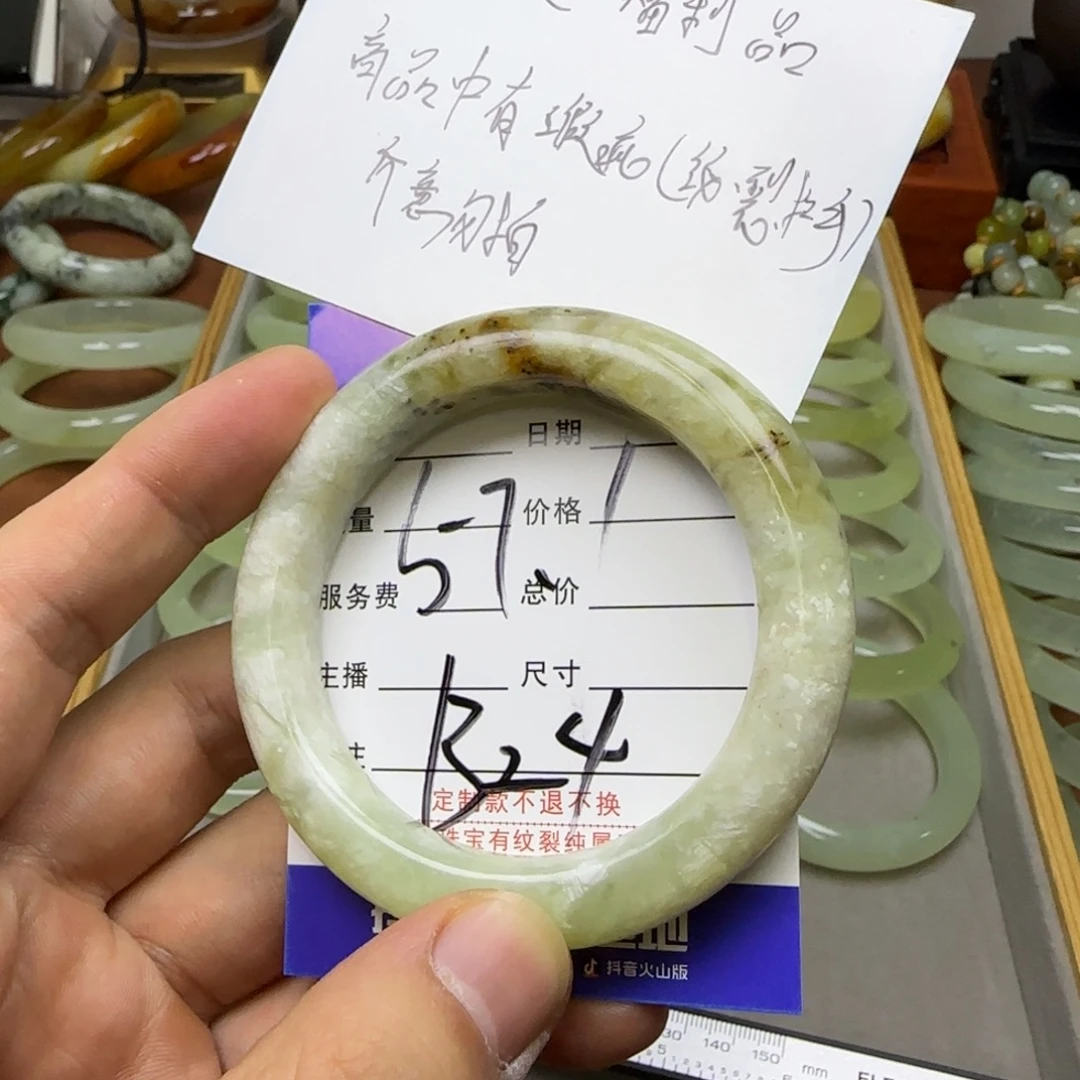 留制品
商品中有瑕疵(纹裂拉手)
介意勿拍
日期
量 57. 价格
服务费 总价
主播 尺寸
主
定制款不退不换
珠宝有纹裂纯属
抖音火山版
30 140 150 mm